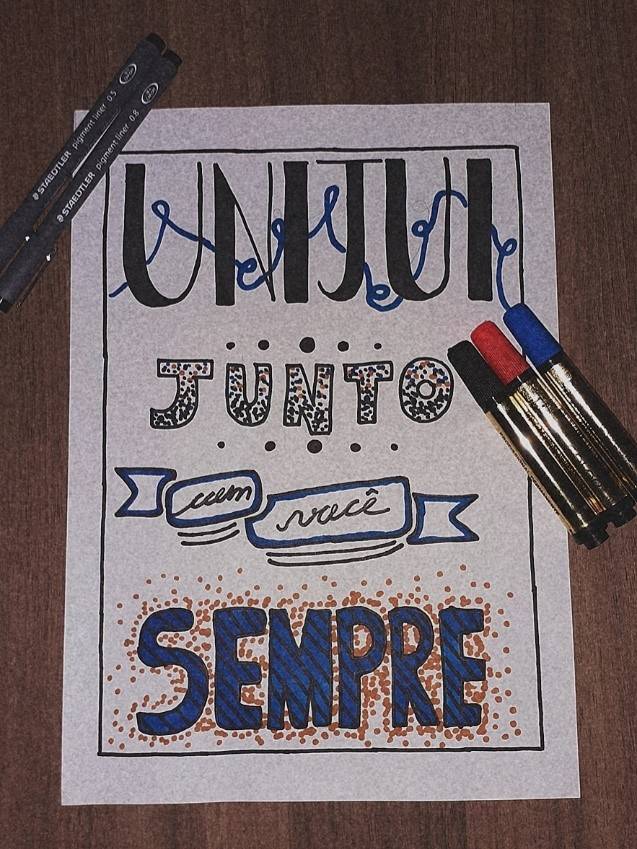 STAEDTLER pigment liner 0.5
STAEDTLER pigment liner 0.8
UNIJUI
JUNTO
com você
SEMPRE